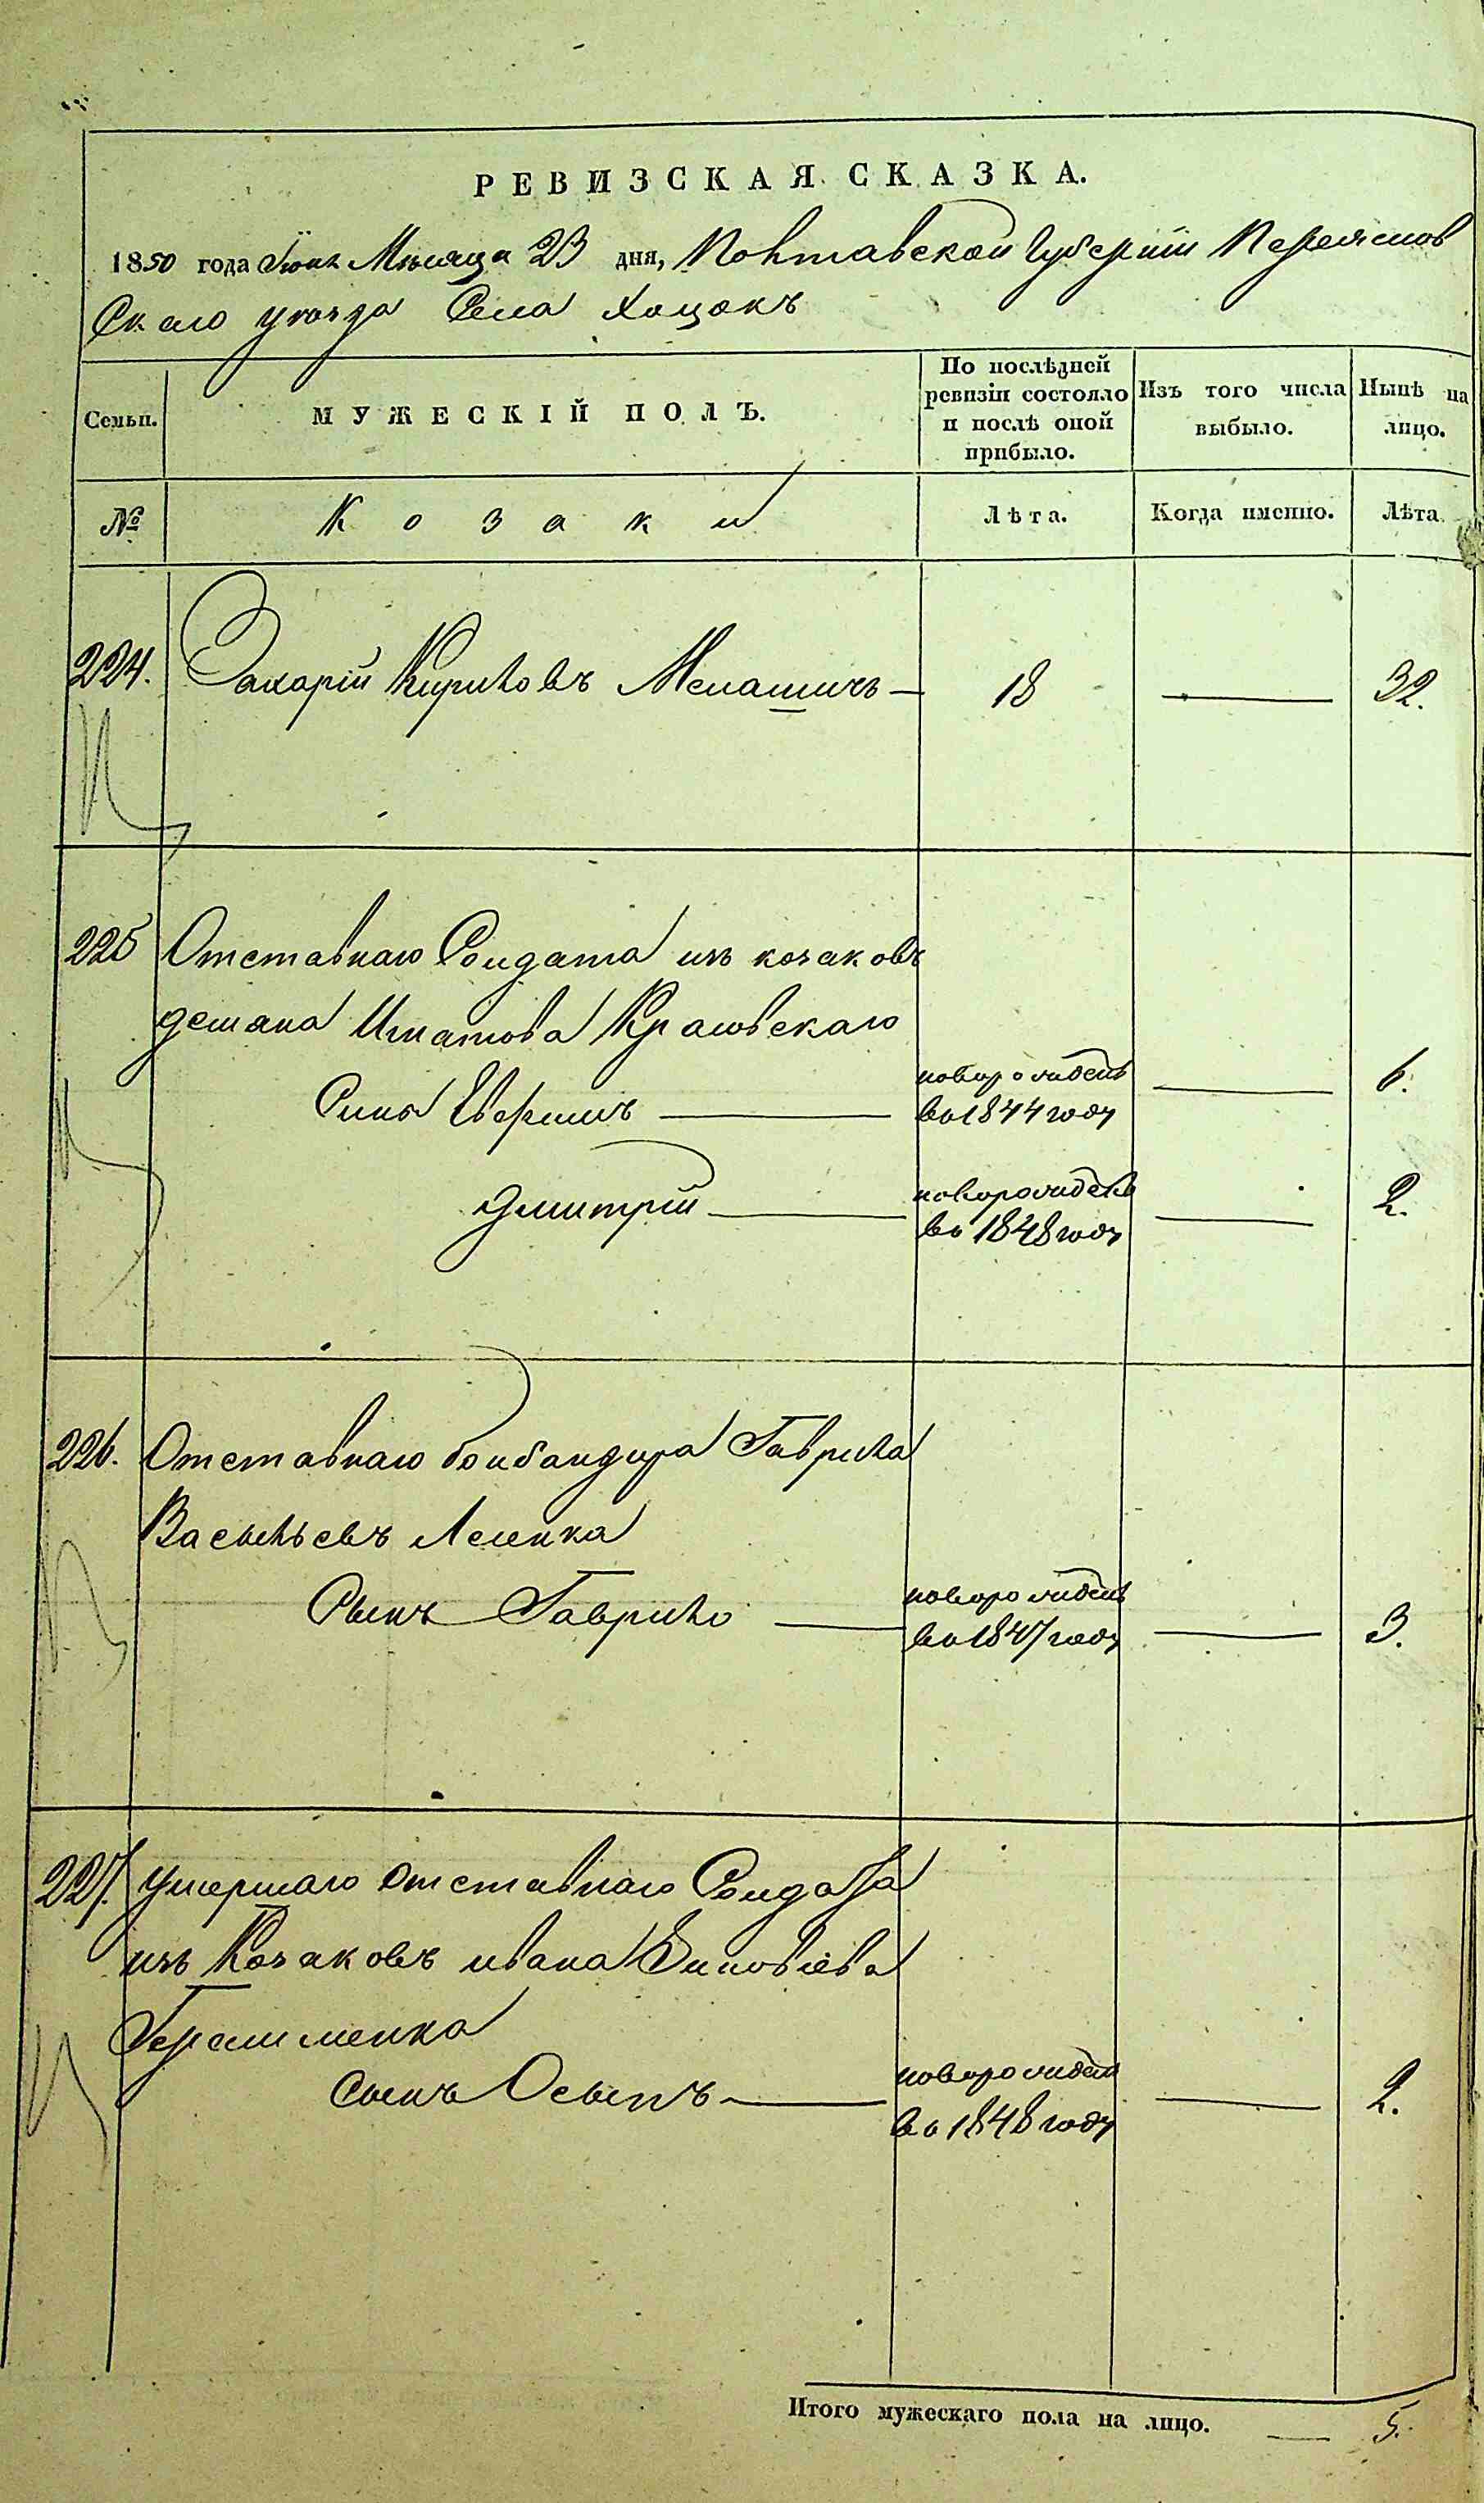 РЕВИЗСКАЯ СКАЗКА.
1850 года Іюня Мѣсяца 23 дня, Полтавской Губерніи Переяслов
Скаго уѣзда Села Хоцокъ
Семьи.
МУЖЕСКІЙ ПОЛЪ.
По послѣдней ревизіи состояло и послѣ оной прибыло.
Изъ того числа выбыло.
Нынѣ на лицо.
№
Козаки
Лѣта.
Когда именно.
Лѣта.
224. Захарій Кириловъ — 18 — 32.
225 Отставнаго Солдата изъ козаковъ
Игнатова Краловскаго
Сынъ — новорожденъ во 1844 году — 6.
Дмитрій — новорожденъ во 1848 году — 2.
226. Отставнаго бонбандира Гаврила
Васильевъ
Сынъ Гаврило — новорожденъ во 1847 году — 3.
227. умершаго отставнаго Солдата
изъ Козаковъ ивана Зиновіева
Герасименка
сынъ Осыпъ — новорожден во 1848 году — 2.
Итого мужескаго пола на лицо. — 5.